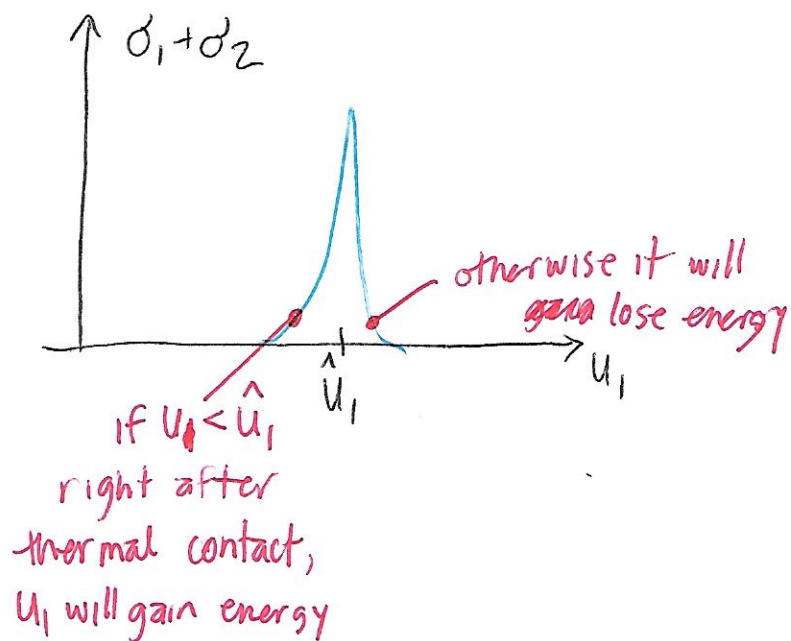 σ₁+σ₂
otherwise it will
lose energy
û₁
u₁
if u₁<û₁
right after
thermal contact,
u₁ will gain energy